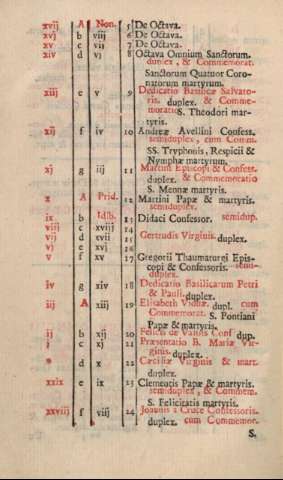 xvij A Non. 5 De Octava.
xvj b viij 6 De Octava.
xv c vij 7 De Octava.
xiv d vj 8 Octava Omnium Sanctorum.
duplex, & Commemorat.
Sanctorum Quatuor Coro-
natorum martyrum.
xiij e v 9 Dedicatio Basilicæ Salvato-
ris. duplex. & Comme-
moratio S. Theodori mar-
tyris.
xij f iv 10 Andreæ Avellini Confess.
semiduplex, cum Comm.
SS. Tryphonis, Respicii &
Nymphæ martyrum.
xj g iij 11 Martini Episcopi & Confess.
duplex. & Commemoratio
S. Mennæ martyris.
x A Prid. 12 Martini Papæ & martyris.
semiduplex.
ix b Idib. 13 Didaci Confessor. semidup.
viij c xviij 14
vij d xvij 15 Gertrudis Virginis. duplex.
vj e xvj 16
v f xv 17 Gregorii Thaumaturgi Epis-
copi & Confessoris. semi-
duplex.
iv g xiv 18 Dedicatio Basilicarum Petri
& Pauli. duplex.
iij A xiij 19 Elisabeth Viduæ. dupl. cum
Commemorat. S. Pontiani
Papæ & martyris.
ij b xij 20 Felicis de Valois Conf dup.
j c xj 21 Præsentatio B. Mariæ Vir-
ginis. duplex.
* d x 22 Cæciliæ Virginis & mart.
duplex.
xxix e ix 23 Clementis Papæ & martyris.
semiduplex, & Commem.
S. Felicitatis martyris.
xxviij f viij 24 Joannis a Cruce Confessoris.
duplex. cum Commemor.
S.